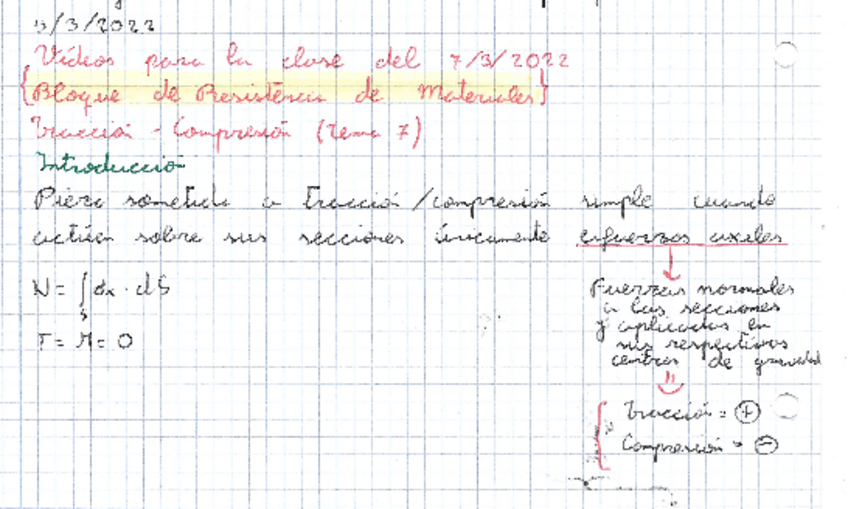 5/3/2022
Vídeos para la clase del 7/3/2022
{Bloque de Resistencia de Materiales}
Tracción - Compresión (tema 7)
Introducción
Pieza sometida a tracción/compresión simple cuando
actúen sobre sus secciones únicamente esfuerzos axiles
N = ∫s σx · dS
T = M = 0
Fuerzas normales
a las secciones
y aplicadas en
sus respectivos
centros de gravedad
Tracción = +
Compresión = -